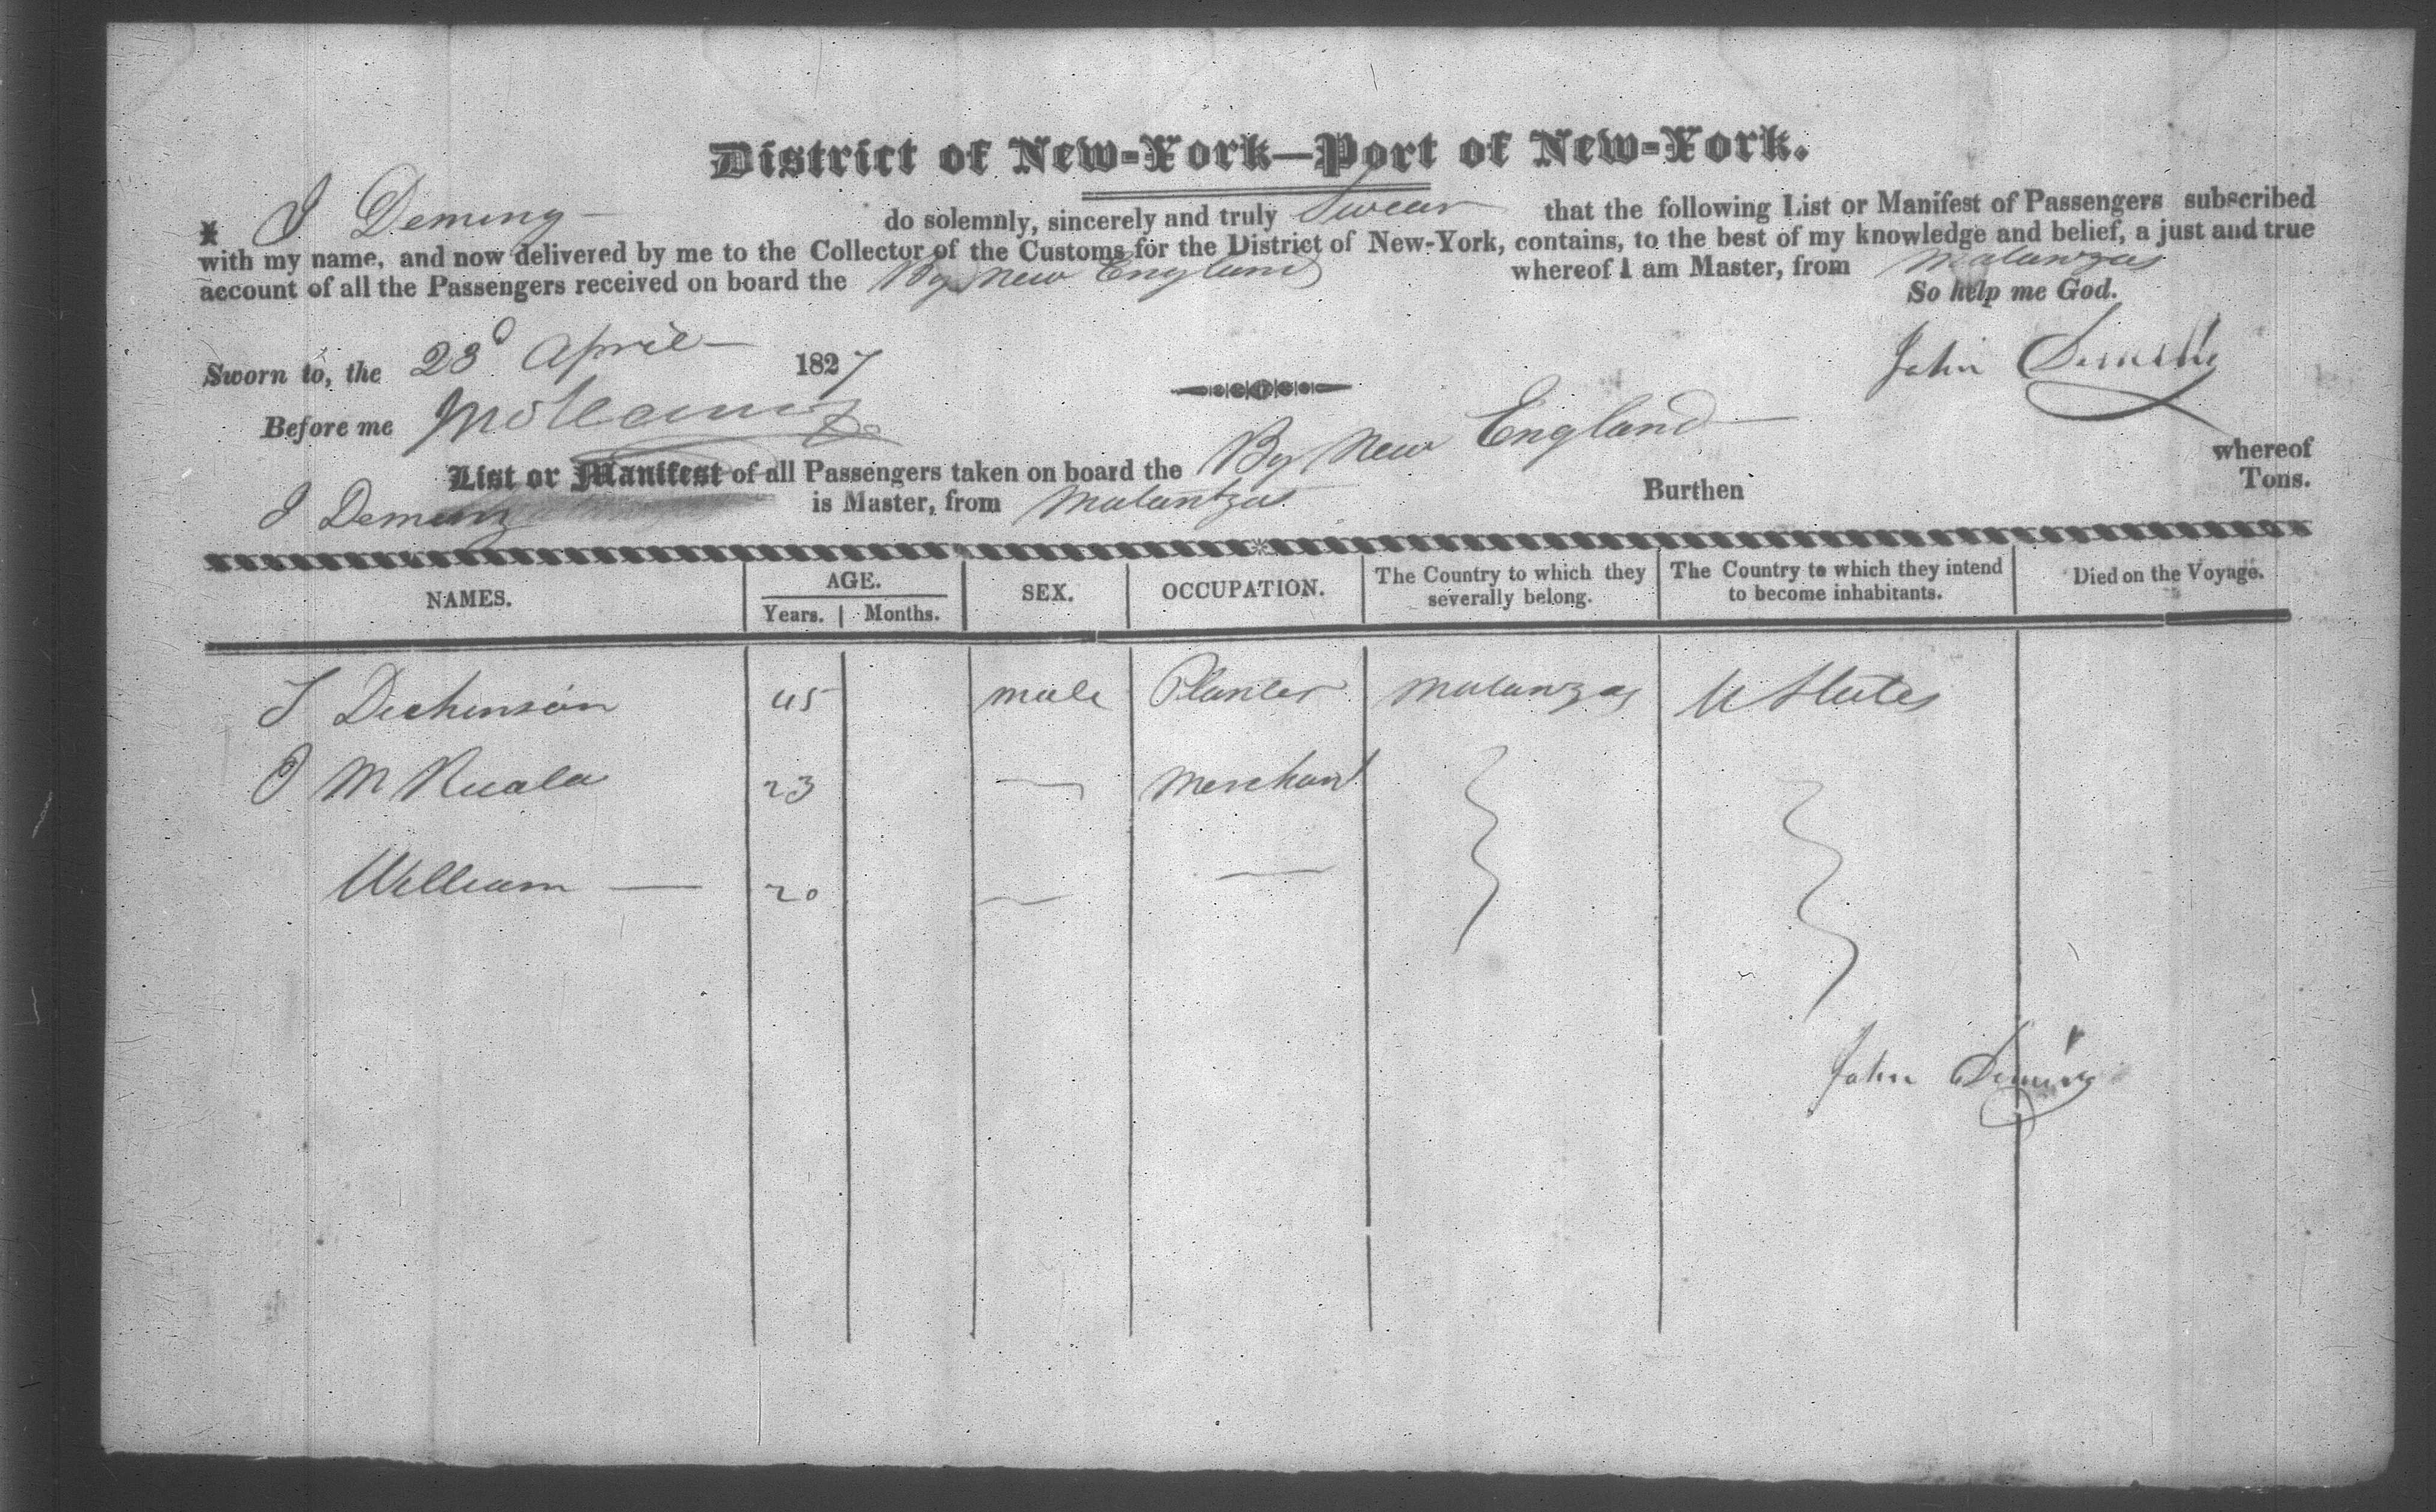 District of New-York—Port of New-York.
I, J Deming do solemnly, sincerely and truly Swear that the following List or Manifest of Passengers subscribed
with my name, and now delivered by me to the Collector of the Customs for the District of New-York, contains, to the best of my knowledge and belief, a just and true
account of all the Passengers received on board the Bg New England whereof I am Master, from Matanzas
So help me God.
Sworn to, the 28 April 1827
John Deming
Before me
List or Manifest of all Passengers taken on board the Bg New England whereof
J Deming is Master, from Matantzas Burthen Tons.
NAMES. AGE. SEX. OCCUPATION. The Country to which they severally belong. The Country to which they intend to become inhabitants. Died on the Voyage.
Years. Months.
J Dickinson 45 male Planter Matanzas U States
J M 23 — Merchant
William — 20 — —
John Deming